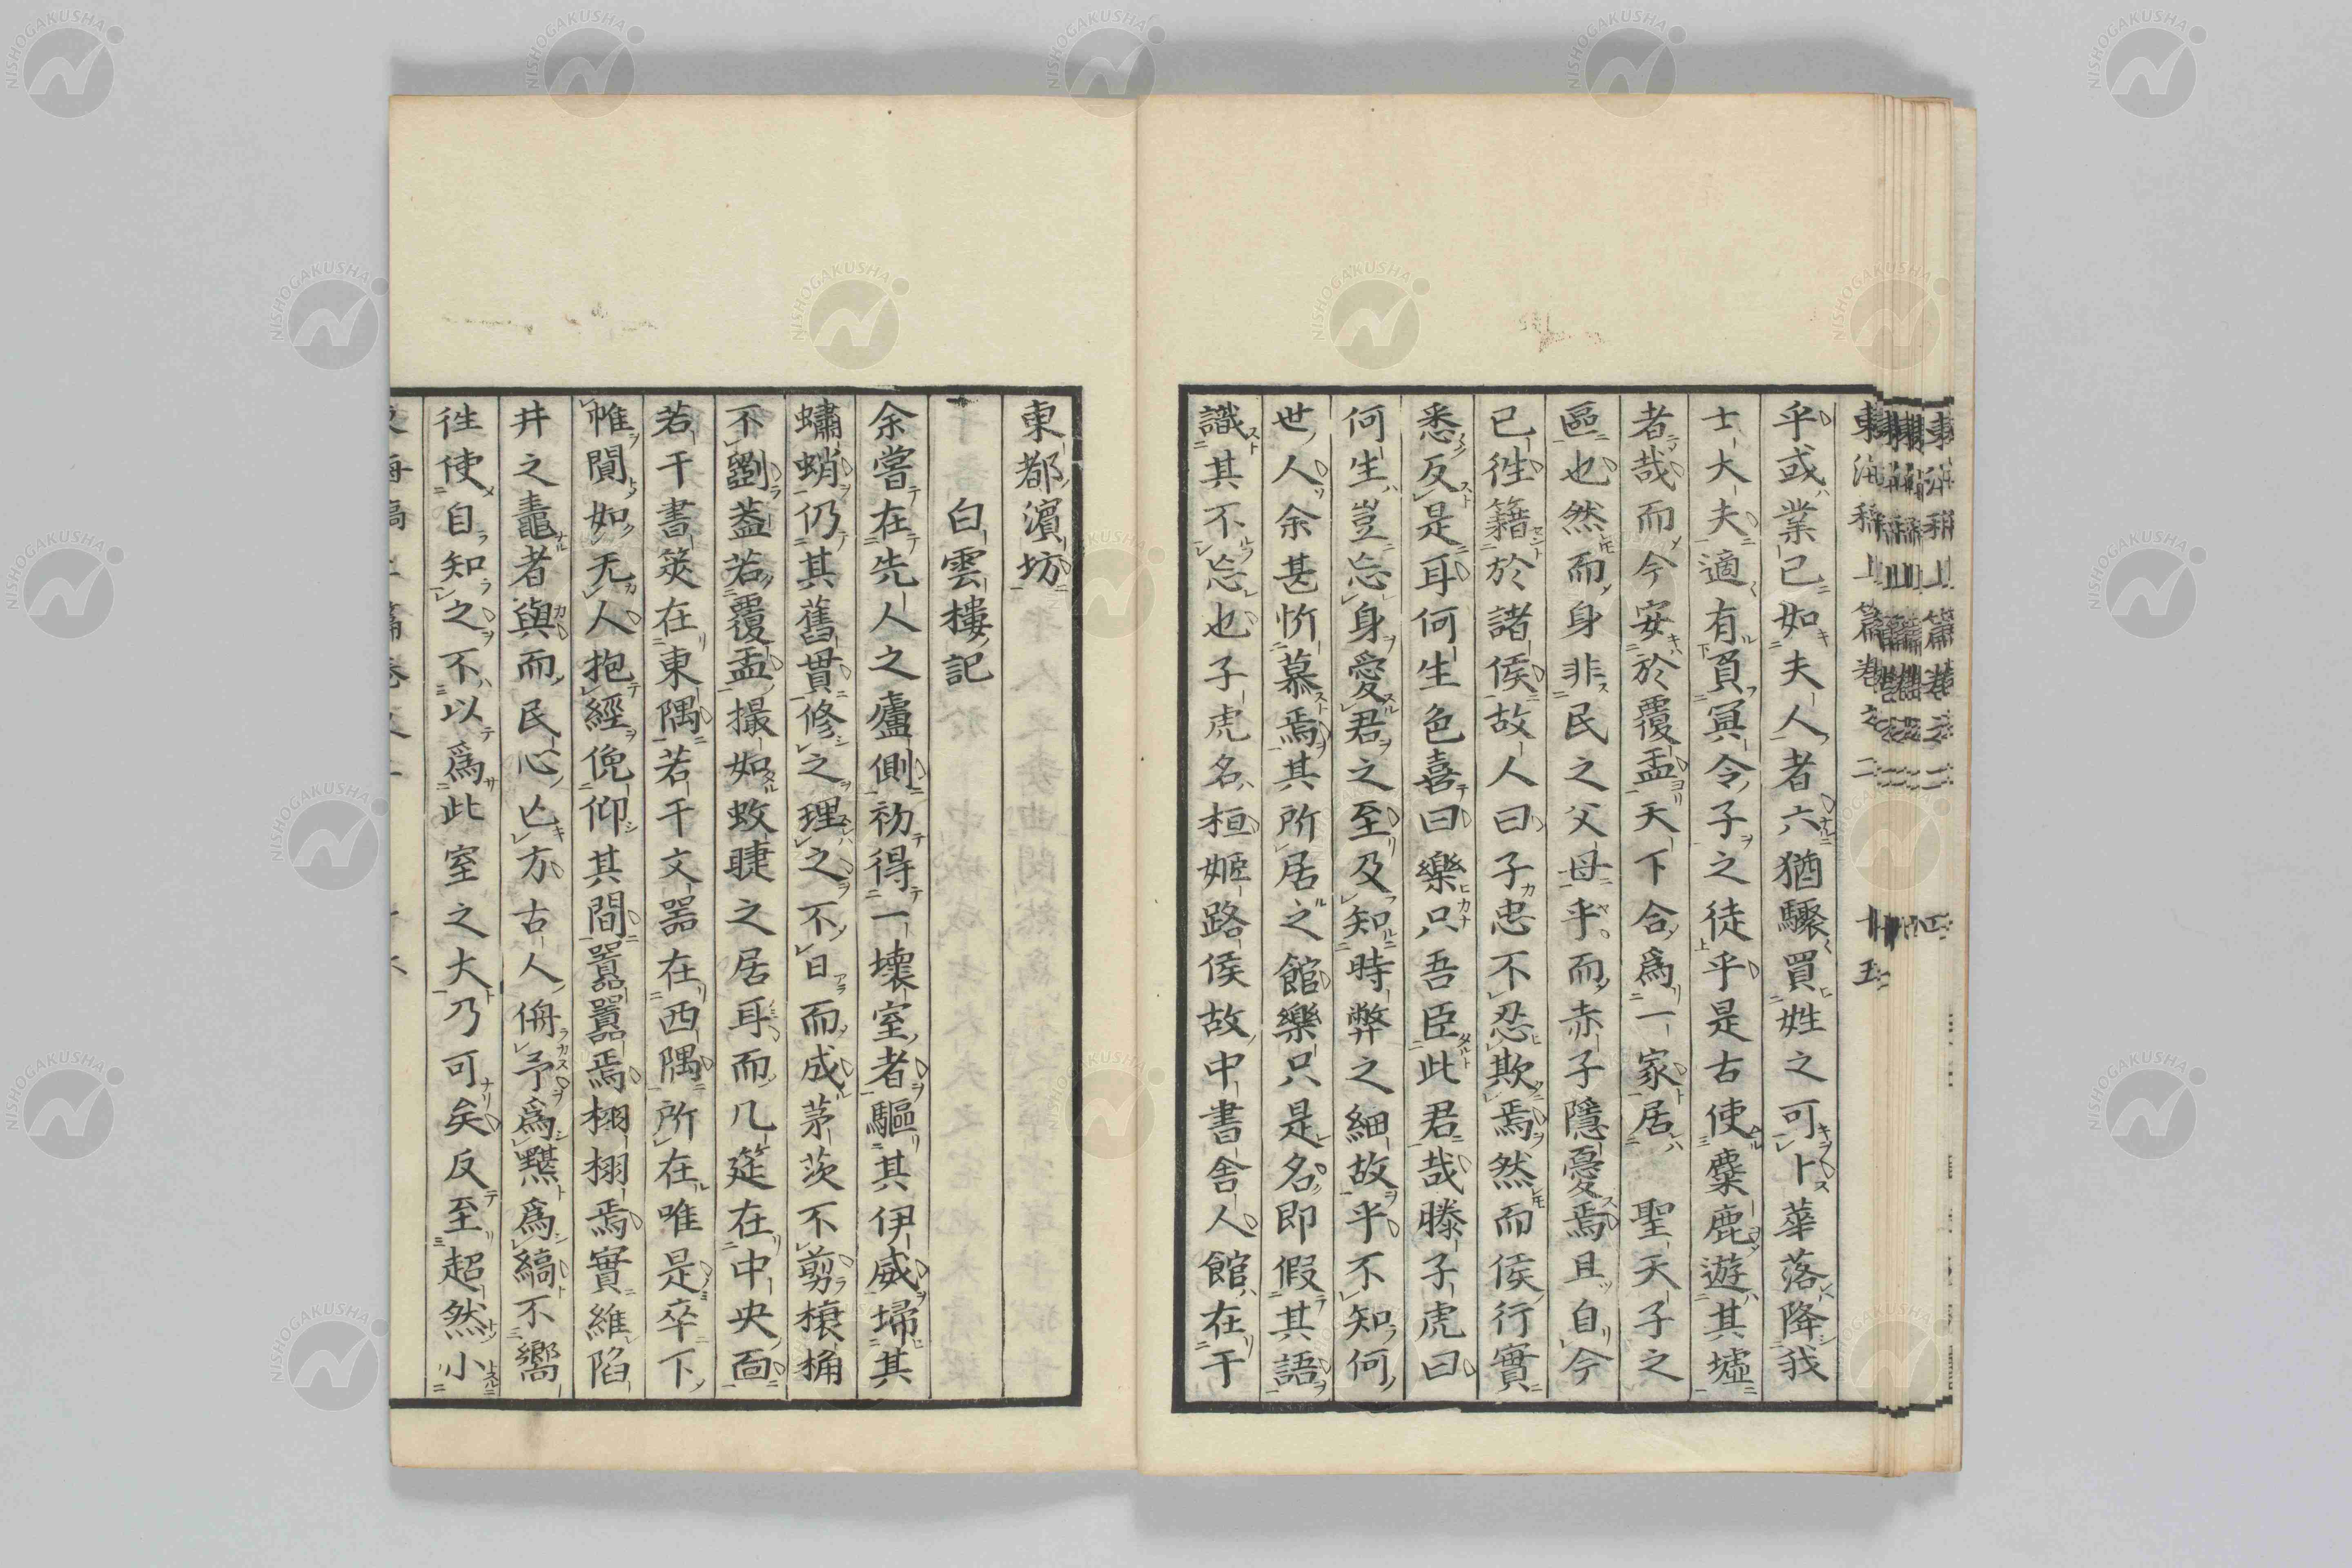 東海稿上篇卷之二 廿五
乎或業已如夫人者六猶驟買姓之可卜華落降我
士大夫適有負冥令子之徒乎是古使麋鹿遊其墟
者哉而今安於覆盂天下合爲一家居 聖天子之
區也然而身非民之父母乎而赤子隱憂焉且自今
已徃籍於諸侯故人曰子忠不忍欺焉然而侯行實
悉反是耳何生色喜曰樂只吾臣此君哉滕子虎曰
何生豈忘身愛君之至及知時弊之細故乎不知何
世人余甚忻慕焉其所居之館樂只是名即假其語
識其不忘也子虎名桓姬路侯故中書舍人館在于
東都濵坊
白雲樓記
余嘗在先人之廬側初得一壞室者驅其伊威埽其
蠨蛸仍其舊貫修之理之不日而成茅茨不剪榱桷
不斲葢若覆盂撮如蚊睫之居耳而几筵在中央面
若干書筴在東隅若干文噐在西隅所在唯是卒下
帷閴如无人抱經俛仰其間嚣嚣焉栩栩焉實維陷
井之鼃者與而民心亾方古人侜予爲黮爲縞不嚮
徃使自知之不以爲此室之大乃可矣反至超然小